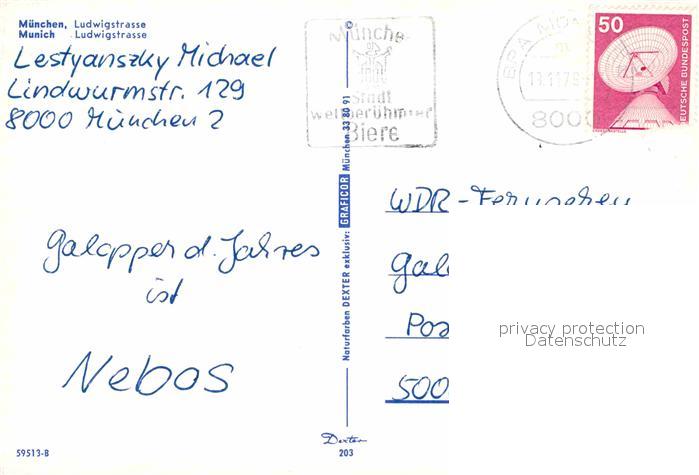 München, Ludwigstrasse
Munich Ludwigstrasse
Lestyanszky Michael
Lindwurmstr. 129
8000 München 2
Galopper d. Jahres
ist
Nebos
59513-B
Naturfarben DEXTER exklusiv: GRAFICOR München 33 80 91 ©
Dexter
203
Münche
Stadt
weltberühmter
Biere
800
50
DEUTSCHE BUNDESPOST
WDR-Fernsehen
Gal
Pos
500
privacy protection
Datenschutz